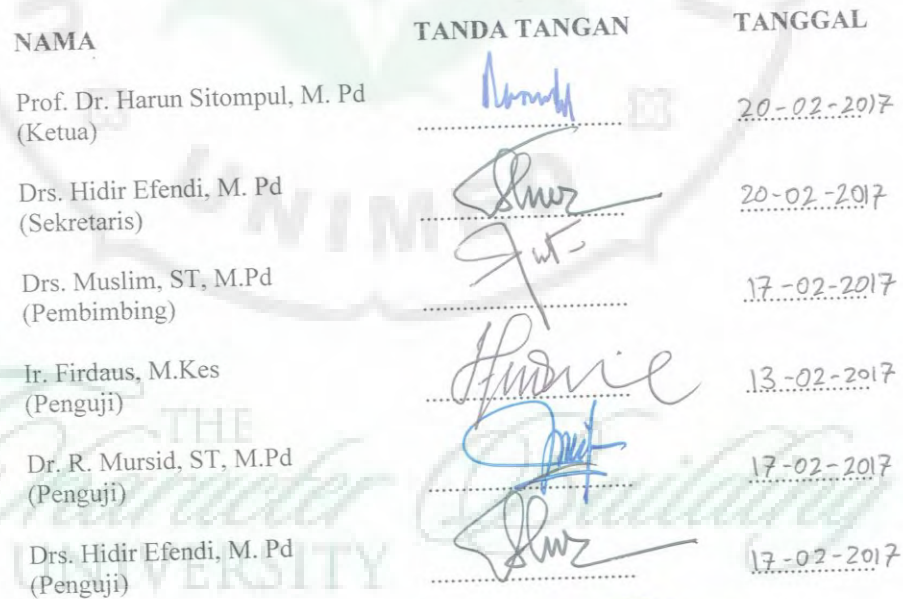 NAMA TANDA TANGAN TANGGAL
Prof. Dr. Harun Sitompul, M. Pd
(Ketua) 20-02-2017
Drs. Hidir Efendi, M. Pd
(Sekretaris) 20-02-2017
Drs. Muslim, ST, M.Pd
(Pembimbing) 17-02-2017
Ir. Firdaus, M.Kes
(Penguji) 13-02-2017
Dr. R. Mursid, ST, M.Pd
(Penguji) 17-02-2017
Drs. Hidir Efendi, M. Pd
(Penguji) 17-02-2017
UNIMED
THE
Character Building
UNIVERSITY